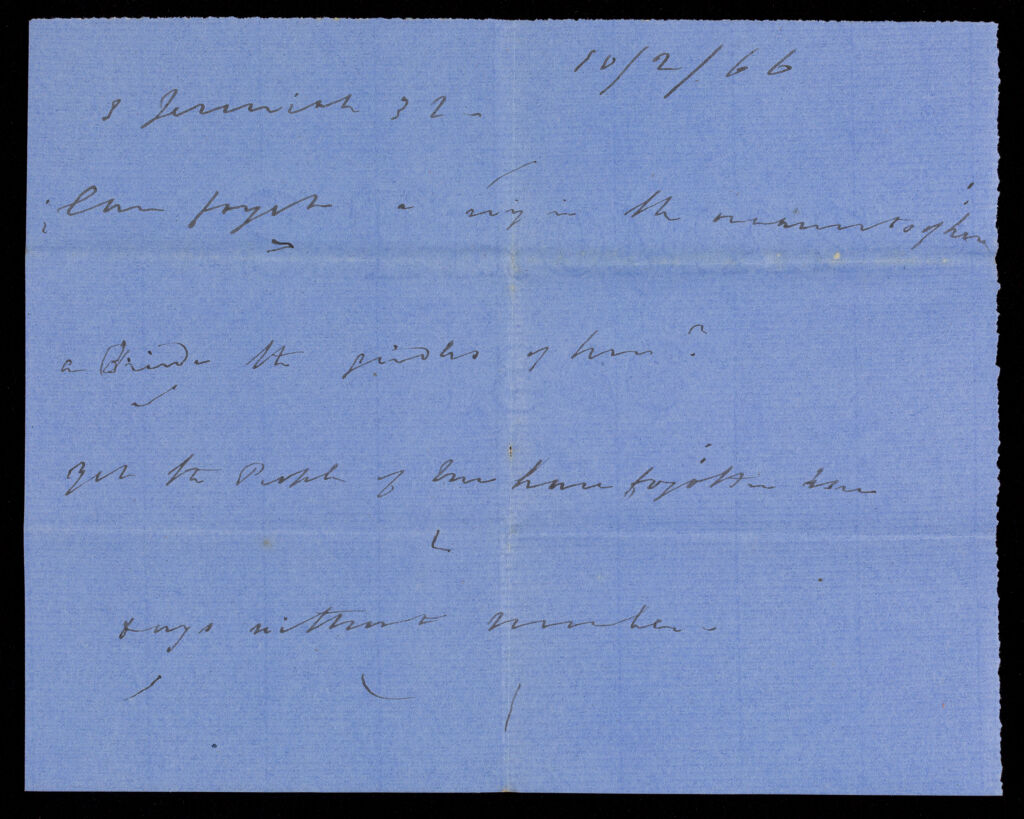 10/2/66
3 Jeremiah 32 -
Can forget a ring in the
a Bride the girdles of love?
yet the People of love have forgotten love
days without number -